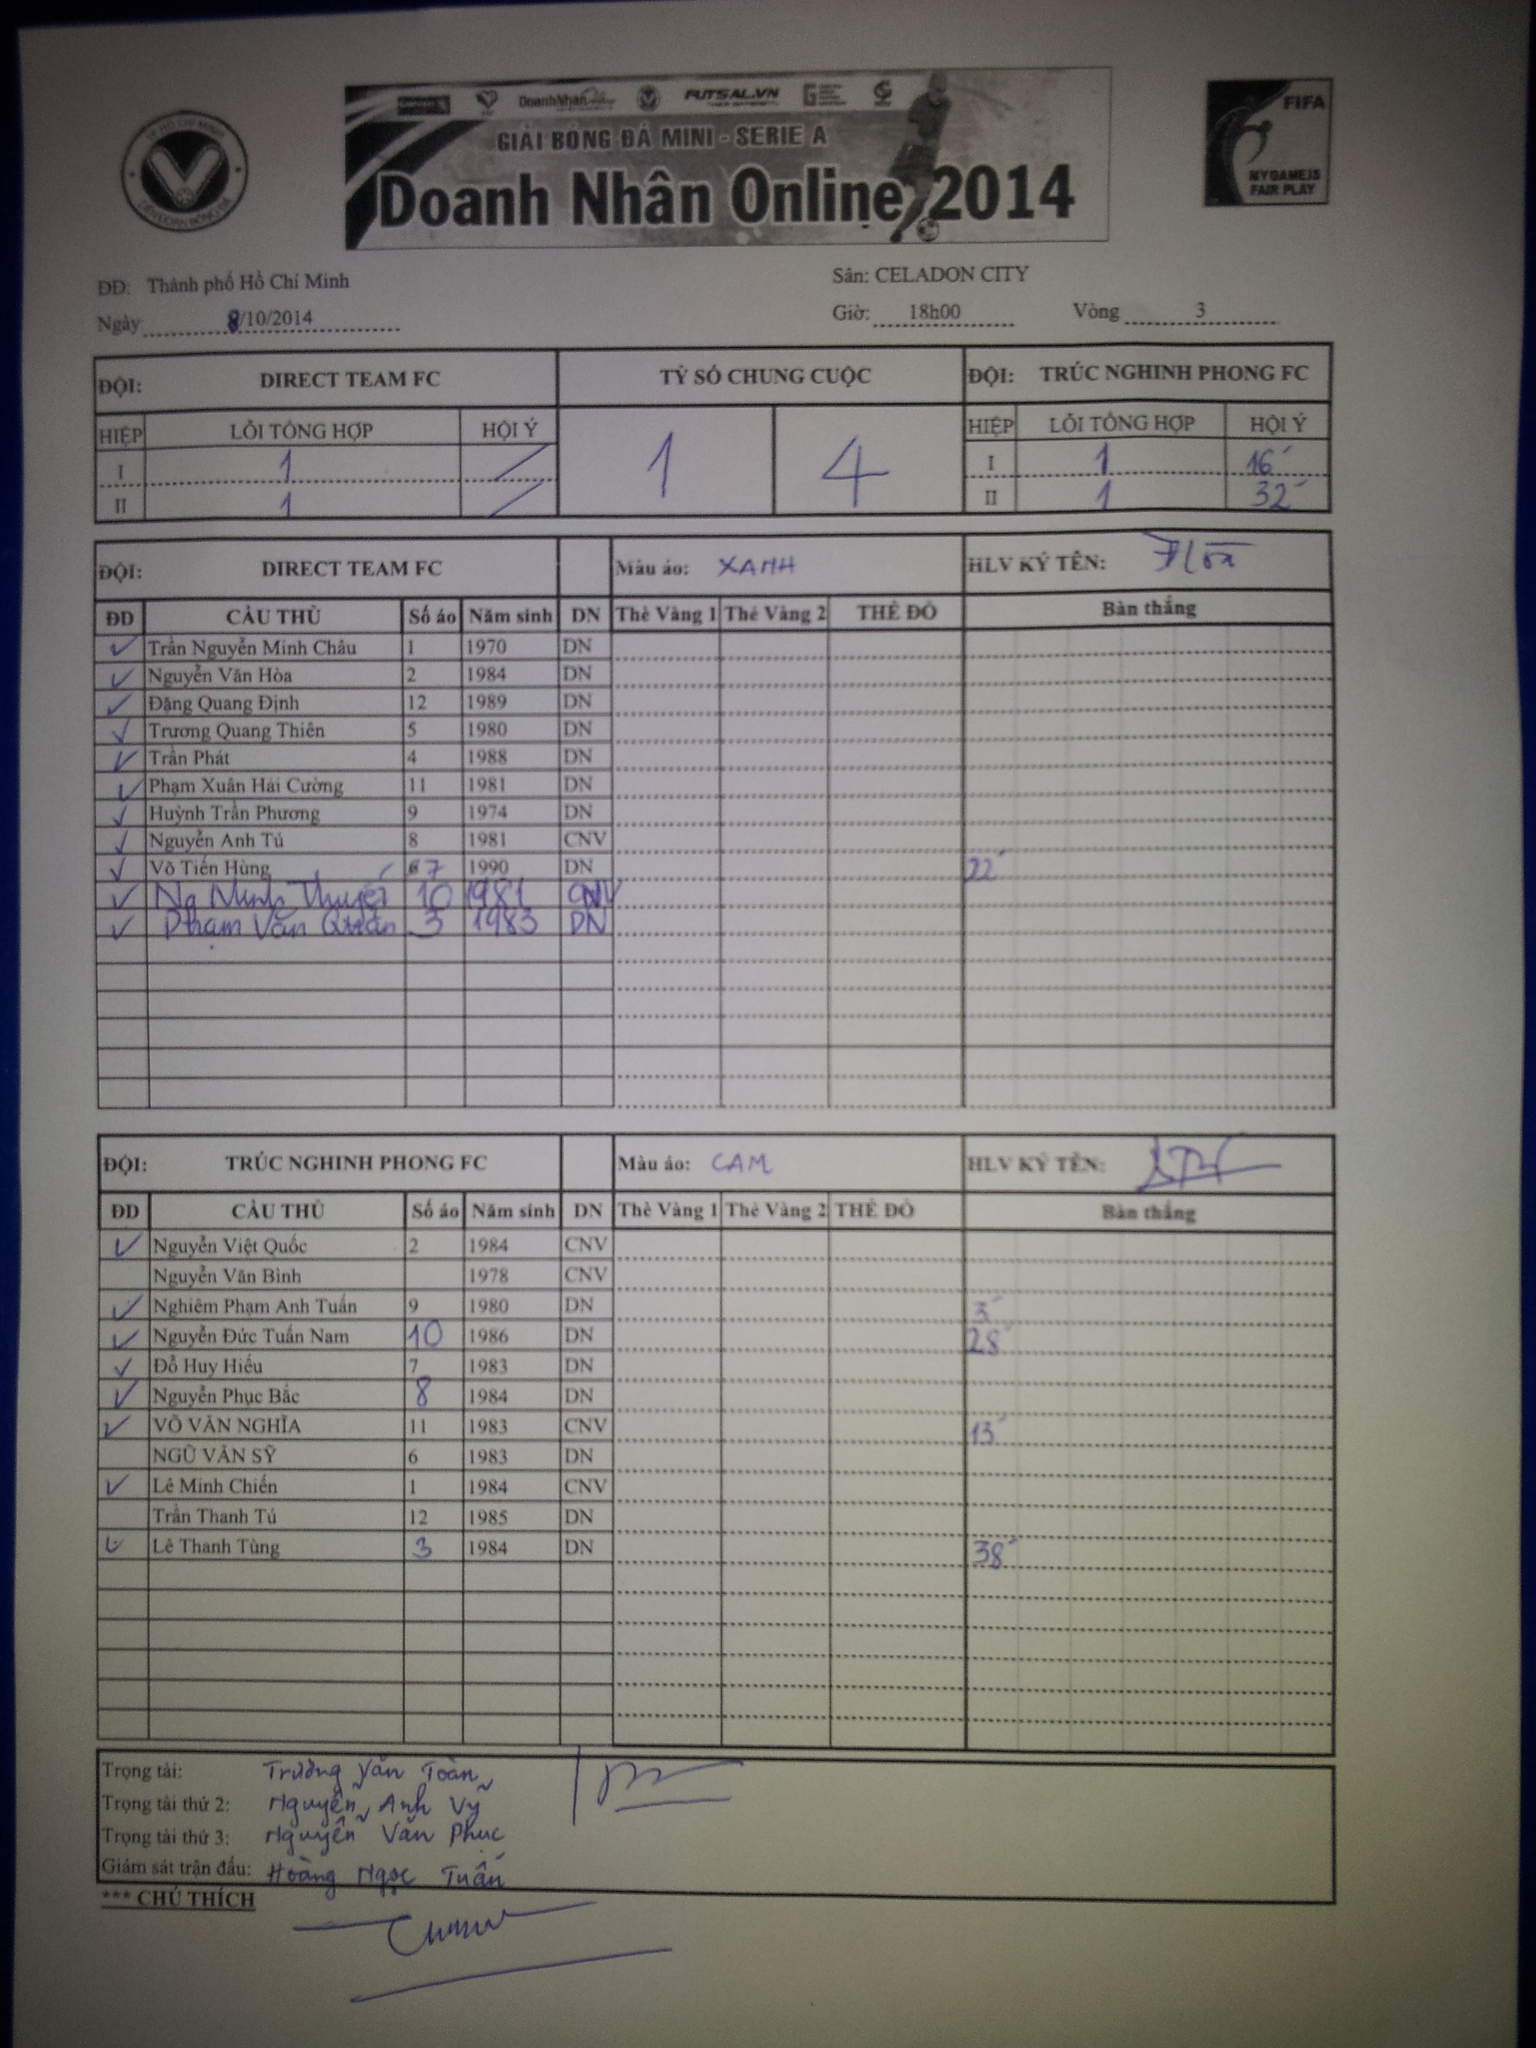 TP HỒ CHÍ MINH
LIÊN ĐOÀN BÓNG ĐÁ
DoanhNhân FUTSAL.VN
GIẢI BÓNG ĐÁ MINI - SERIE A
Doanh Nhân Online 2014
FIFA
MY GAME IS
FAIR PLAY
ĐĐ: Thành phố Hồ Chí Minh Sân: CELADON CITY
Ngày 8/10/2014 Giờ: 18h00 Vòng 3
ĐỘI: DIRECT TEAM FC TỶ SỐ CHUNG CUỘC ĐỘI: TRÚC NGHINH PHONG FC
HIỆP LỖI TỔNG HỢP HỘI Ý 1 4 HIỆP LỖI TỔNG HỢP HỘI Ý
I 1 / I 1 16'
II 1 / II 1 32'
ĐỘI: DIRECT TEAM FC Màu áo: XANH HLV KÝ TÊN:
ĐD CẦU THỦ Số áo Năm sinh DN Thẻ Vàng 1 Thẻ Vàng 2 THẺ ĐỎ Bàn thắng
✓ Trần Nguyễn Minh Châu 1 1970 DN
✓ Nguyễn Văn Hòa 2 1984 DN
✓ Đặng Quang Định 12 1989 DN
✓ Trương Quang Thiên 5 1980 DN
✓ Trần Phát 4 1988 DN
✓ Phạm Xuân Hải Cường 11 1981 DN
✓ Huỳnh Trần Phương 9 1974 DN
✓ Nguyễn Anh Tú 8 1981 CNV
✓ Võ Tiến Hùng 7 1990 DN 22'
✓ Ng Minh Thuyết 10 1981 CNV
✓ Phạm Văn Quân 3 1983 DN
ĐỘI: TRÚC NGHINH PHONG FC Màu áo: CAM HLV KÝ TÊN:
ĐD CẦU THỦ Số áo Năm sinh DN Thẻ Vàng 1 Thẻ Vàng 2 THẺ ĐỎ Bàn thắng
✓ Nguyễn Việt Quốc 2 1984 CNV
Nguyễn Văn Bình 1978 CNV
✓ Nghiêm Phạm Anh Tuấn 9 1980 DN 3'
✓ Nguyễn Đức Tuấn Nam 10 1986 DN 28'
✓ Đỗ Huy Hiếu 7 1983 DN
✓ Nguyễn Phục Bắc 8 1984 DN
✓ VÕ VĂN NGHĨA 11 1983 CNV 13'
NGŨ VĂN SỸ 6 1983 DN
✓ Lê Minh Chiến 1 1984 CNV
Trần Thanh Tú 12 1985 DN
✓ Lê Thanh Tùng 3 1984 DN 38'
Trọng tài: Trương Văn Toàn
Trọng tài thứ 2: Nguyễn Anh Vỹ
Trọng tài thứ 3: Nguyễn Văn Phục
Giám sát trận đấu: Hoàng Ngọc Tuấn
*** CHÚ THÍCH